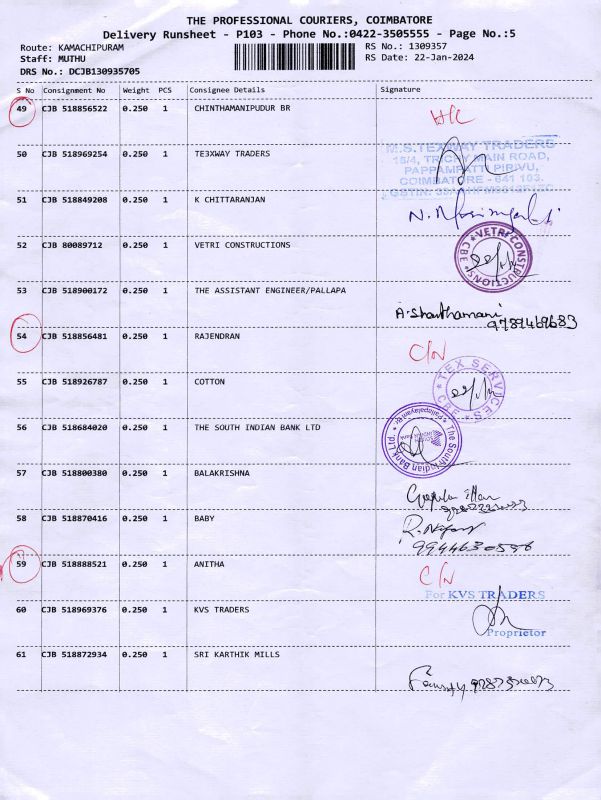 THE PROFESSIONAL COURIERS, COIMBATORE
Delivery Runsheet - P103 - Phone No.:0422-3505555 - Page No.:5
Route: KAMACHIPURAM
RS No.: 1309357
Staff: MUTHU
RS Date: 22-Jan-2024
DRS No.: DCJB130935705
S No Consignment No Weight PCS Consignee Details Signature
49 CJB 518856522 0.250 1 CHINTHAMANIPUDUR BR
50 CJB 518969254 0.250 1 TE3XWAY TRADERS
M.S.TEXWAY TRADERS
18/4, TRICHY MAIN ROAD,
PAPPAMPATTI PIRIVU,
COIMBATORE - 641 103.
51 CJB 518849208 0.250 1 K CHITTARANJAN
52 CJB 80089712 0.250 1 VETRI CONSTRUCTIONS
VETRI CONSTRUCTIONS
CBE
53 CJB 518900172 0.250 1 THE ASSISTANT ENGINEER/PALLAPA
A. Shanthamani
9789469683
54 CJB 518856481 0.250 1 RAJENDRAN
C/N
55 CJB 518926787 0.250 1 COTTON
TEX SERVICES
CBE
56 CJB 518684020 0.250 1 THE SOUTH INDIAN BANK LTD
The South Indian Bank Ltd
57 CJB 518800380 0.250 1 BALAKRISHNA
58 CJB 518870416 0.250 1 BABY
59 CJB 518888521 0.250 1 ANITHA
C/N
60 CJB 518969376 0.250 1 KVS TRADERS
For KVS TRADERS
Proprietor
61 CJB 518872934 0.250 1 SRI KARTHIK MILLS